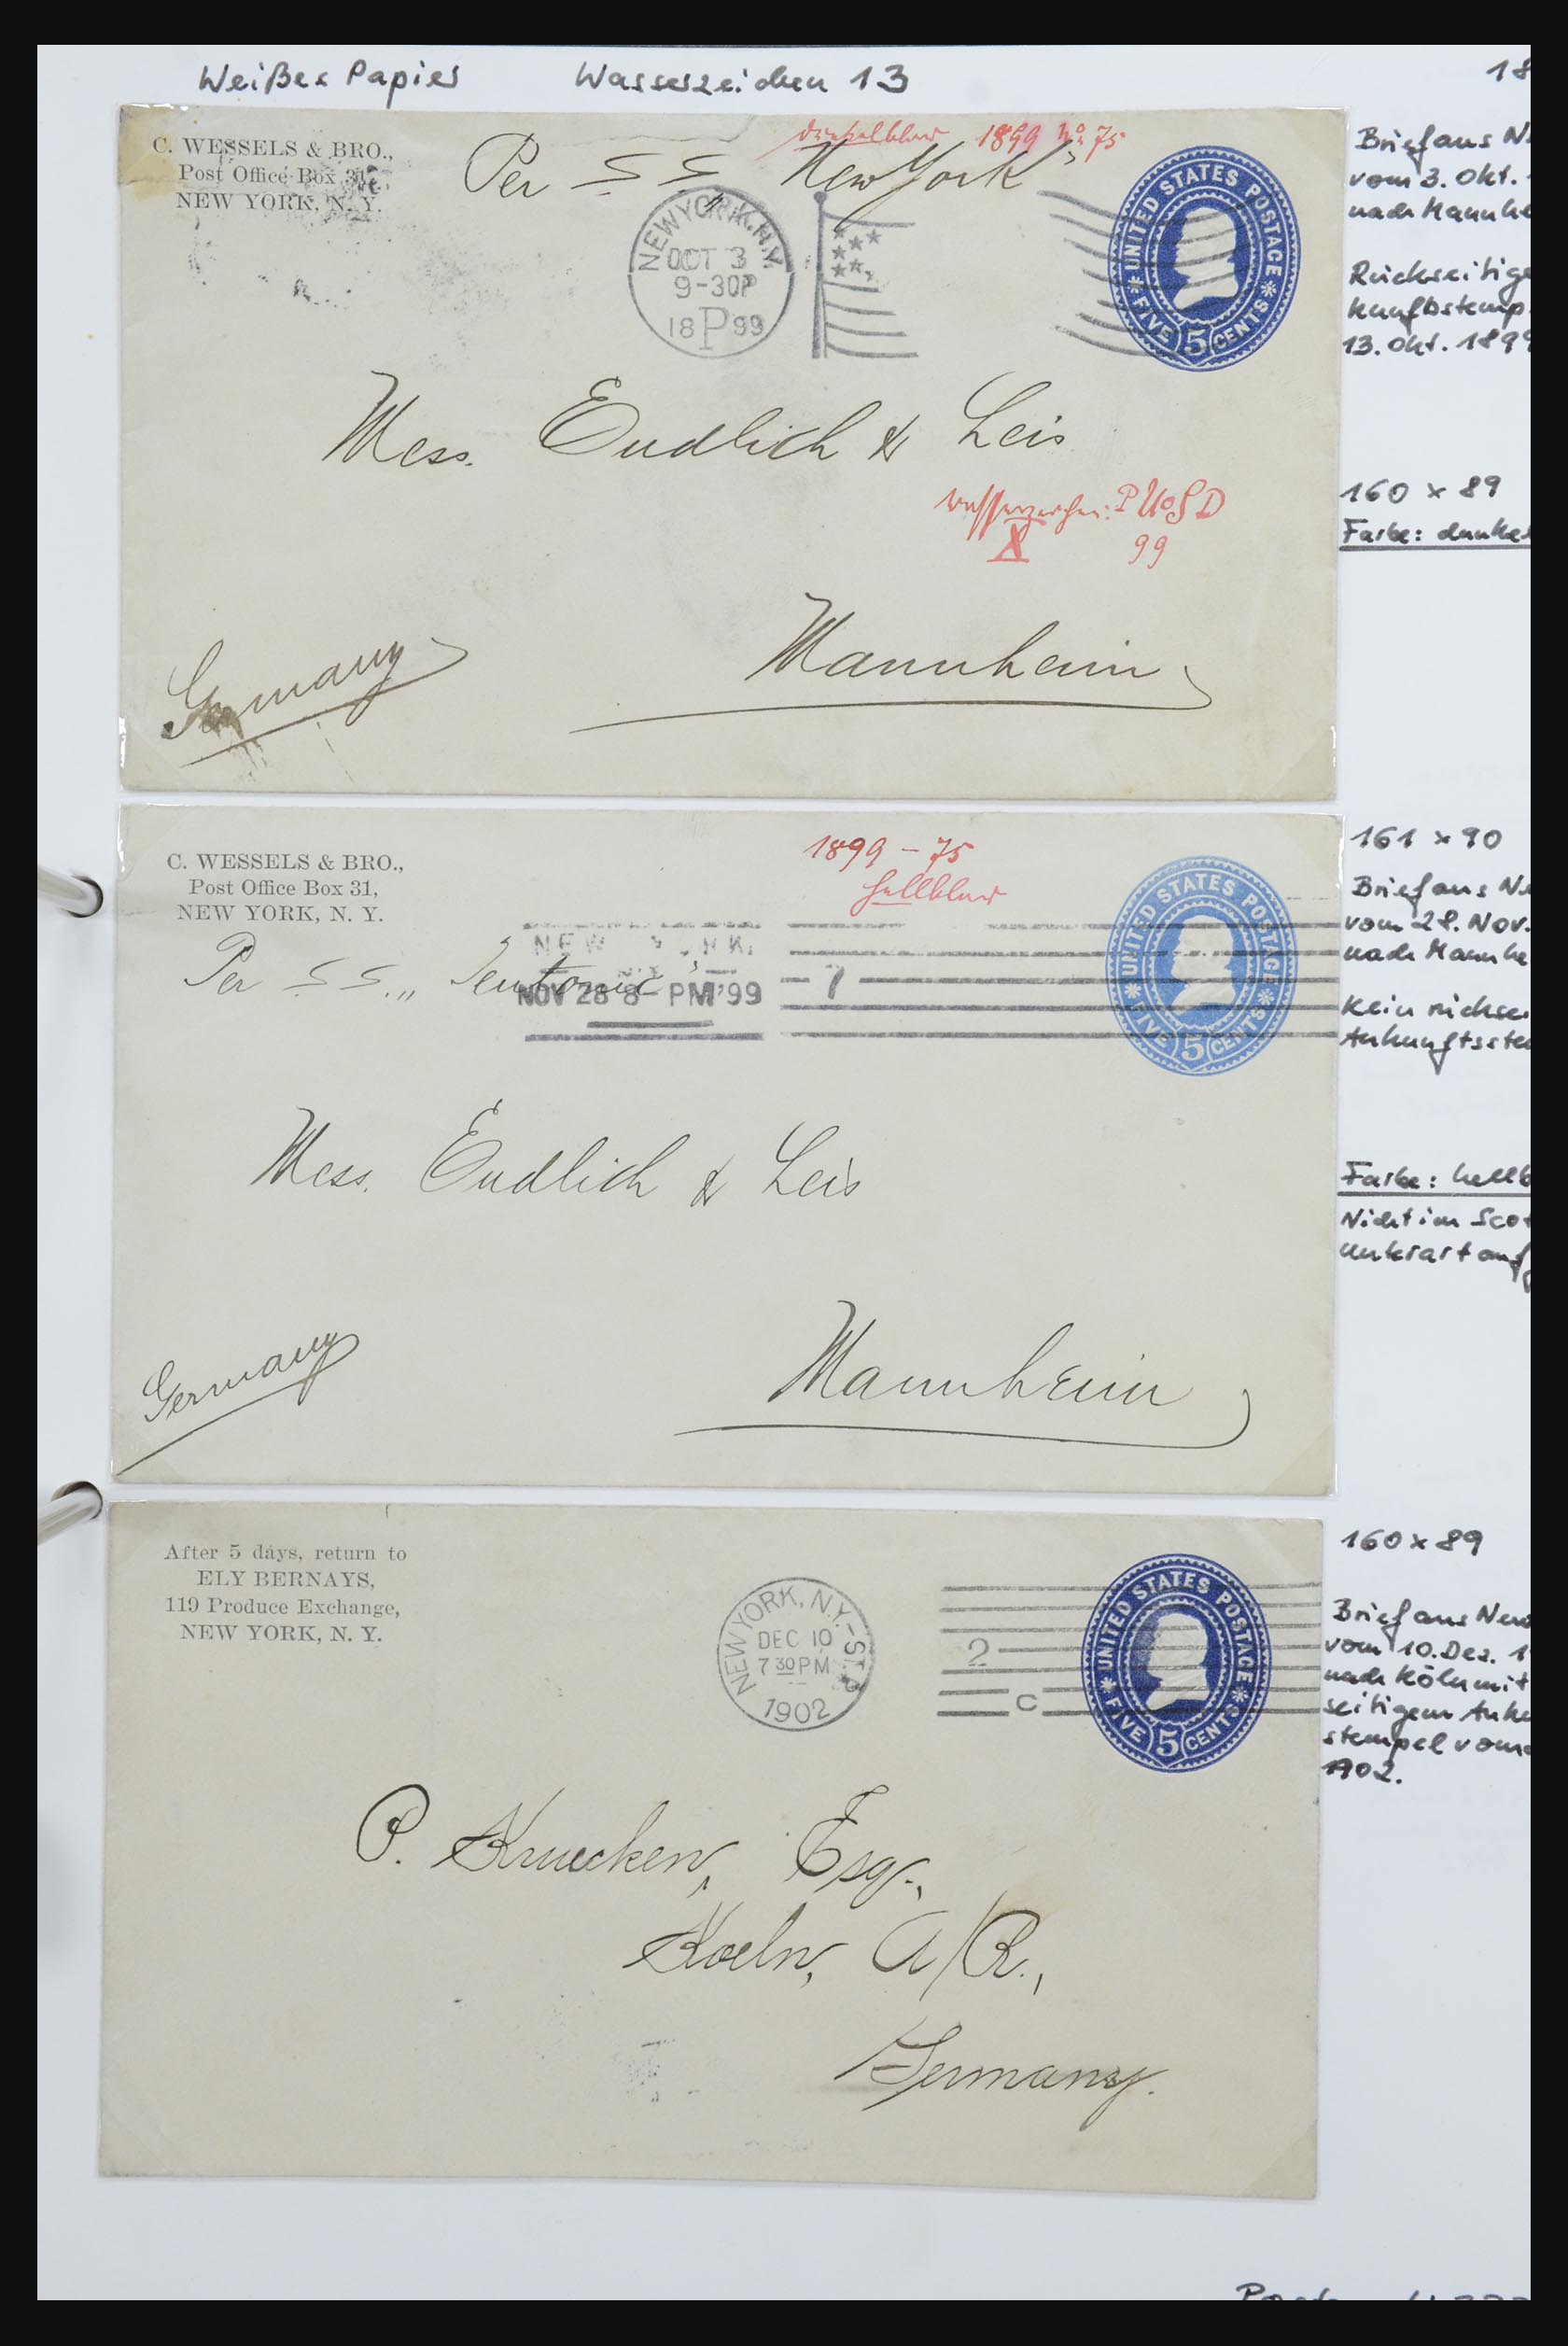 Weißes Papier Wasserzeichen 13
18
C. WESSELS & BRO.,
Post Office Box 31,
NEW YORK, N. Y.
dunkelblau 1899 No 75
Per S S „ New York "
NEW YORK, N.Y.
OCT 3
9-30P
18 P 99
UNITED STATES POSTAGE
FIVE 5 CENTS
Mess. Endlich & Leis
Wasserzeichen: P U o S D
X 99
Mannheim
Germany
Brief aus N
vom 3. Okt.
nach Mannhe
Rückseitige
kunftsstemp
13. Okt. 1899
160 x 89
Farbe: dunke
C. WESSELS & BRO.,
Post Office Box 31,
NEW YORK, N. Y.
1899 - 75
hellblau
Per S S „ Teutonic "
NEW Y RK,
NOV 28 8- PM '99
1
UNITED STATES POSTAGE
FIVE 5 CENTS
Mess. Endlich & Leis
Mannheim
Germany
161 x 90
Brief aus Ne
vom 28. Nov.
nach Mannhe
Kein rücksei
Ankunftsste
Farbe: hellb
Nicht im Scot
After 5 days, return to
ELY BERNAYS,
119 Produce Exchange,
NEW YORK, N. Y.
NEW YORK, N.Y.-ST. P
DEC 10
7 30 PM
1902
2
C
UNITED STATES POSTAGE
FIVE 5 CENTS
P. Kruecken, Esq.,
Koeln, A/R.,
Germany.
160 x 89
Brief aus New
vom 10. Dez. 1
nach Köln mit
seitigem Anku
stempel vom
1902.